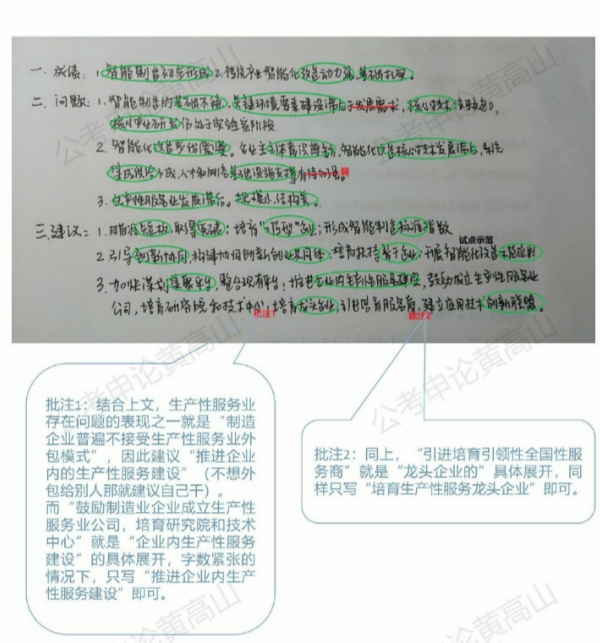 一、成绩：1.智能制造初步形成2.传统产业智能化改造动力强,基础扎实。
二、问题：1.智能制造的基础不稳。关键环节要素建设滞后于发展需求，核心技术
核心产业研发仍处于实验室阶段
2.智能化改造
智能化改造核心技术发展滞后，系统
3.生产性服务业发展滞后。规模小,结构差。
三.建议：1.培育“小巨人”企业；形成智能制造标准指数
试点示范
2.引导创新协同,构建协同创新创业共同体；培育扶持骨干企业,开展智能化改造示范应用
3.加快谋划集聚平台，整合现有平台；推进企业内生产性服务建设，鼓励成立生产性服务业
公司，培育研究院和技术中心；培育龙头企业,引进培育服务商,建立应用技术创新联盟。
批注1
批注2
批注1：结合上文，生产性服务业
存在问题的表现之一就是“制造
企业普遍不接受生产性服务业外
包模式”，因此建议“推进企业
内的生产性服务建设”（不想外
包给别人那就建议自己干）。
而“鼓励制造业企业成立生产性
服务业公司，培育研究院和技术
中心”就是“企业内生产性服务
建设”的具体展开，字数紧张的
情况下，只写“推进企业内生产
性服务建设”即可。
批注2：同上，“引进培育引领性全国性服
务商”就是“龙头企业的”具体展开，同
样只写“培育生产性服务龙头企业”即可。
公考申论黄高山
公考申论黄高山
公考申论黄高山
公考申论黄高山